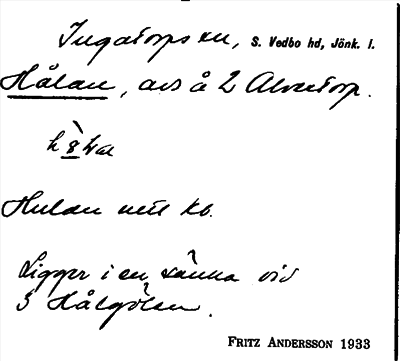 Ingatorps sn, S. Vedbo hd, Jönk. l.
Hålan, avs å 2 Alvestorp.
Hulan mtl kb.
Ligger i en sänka vid
S Hålgölen.
FRITZ ANDERSSON 1933